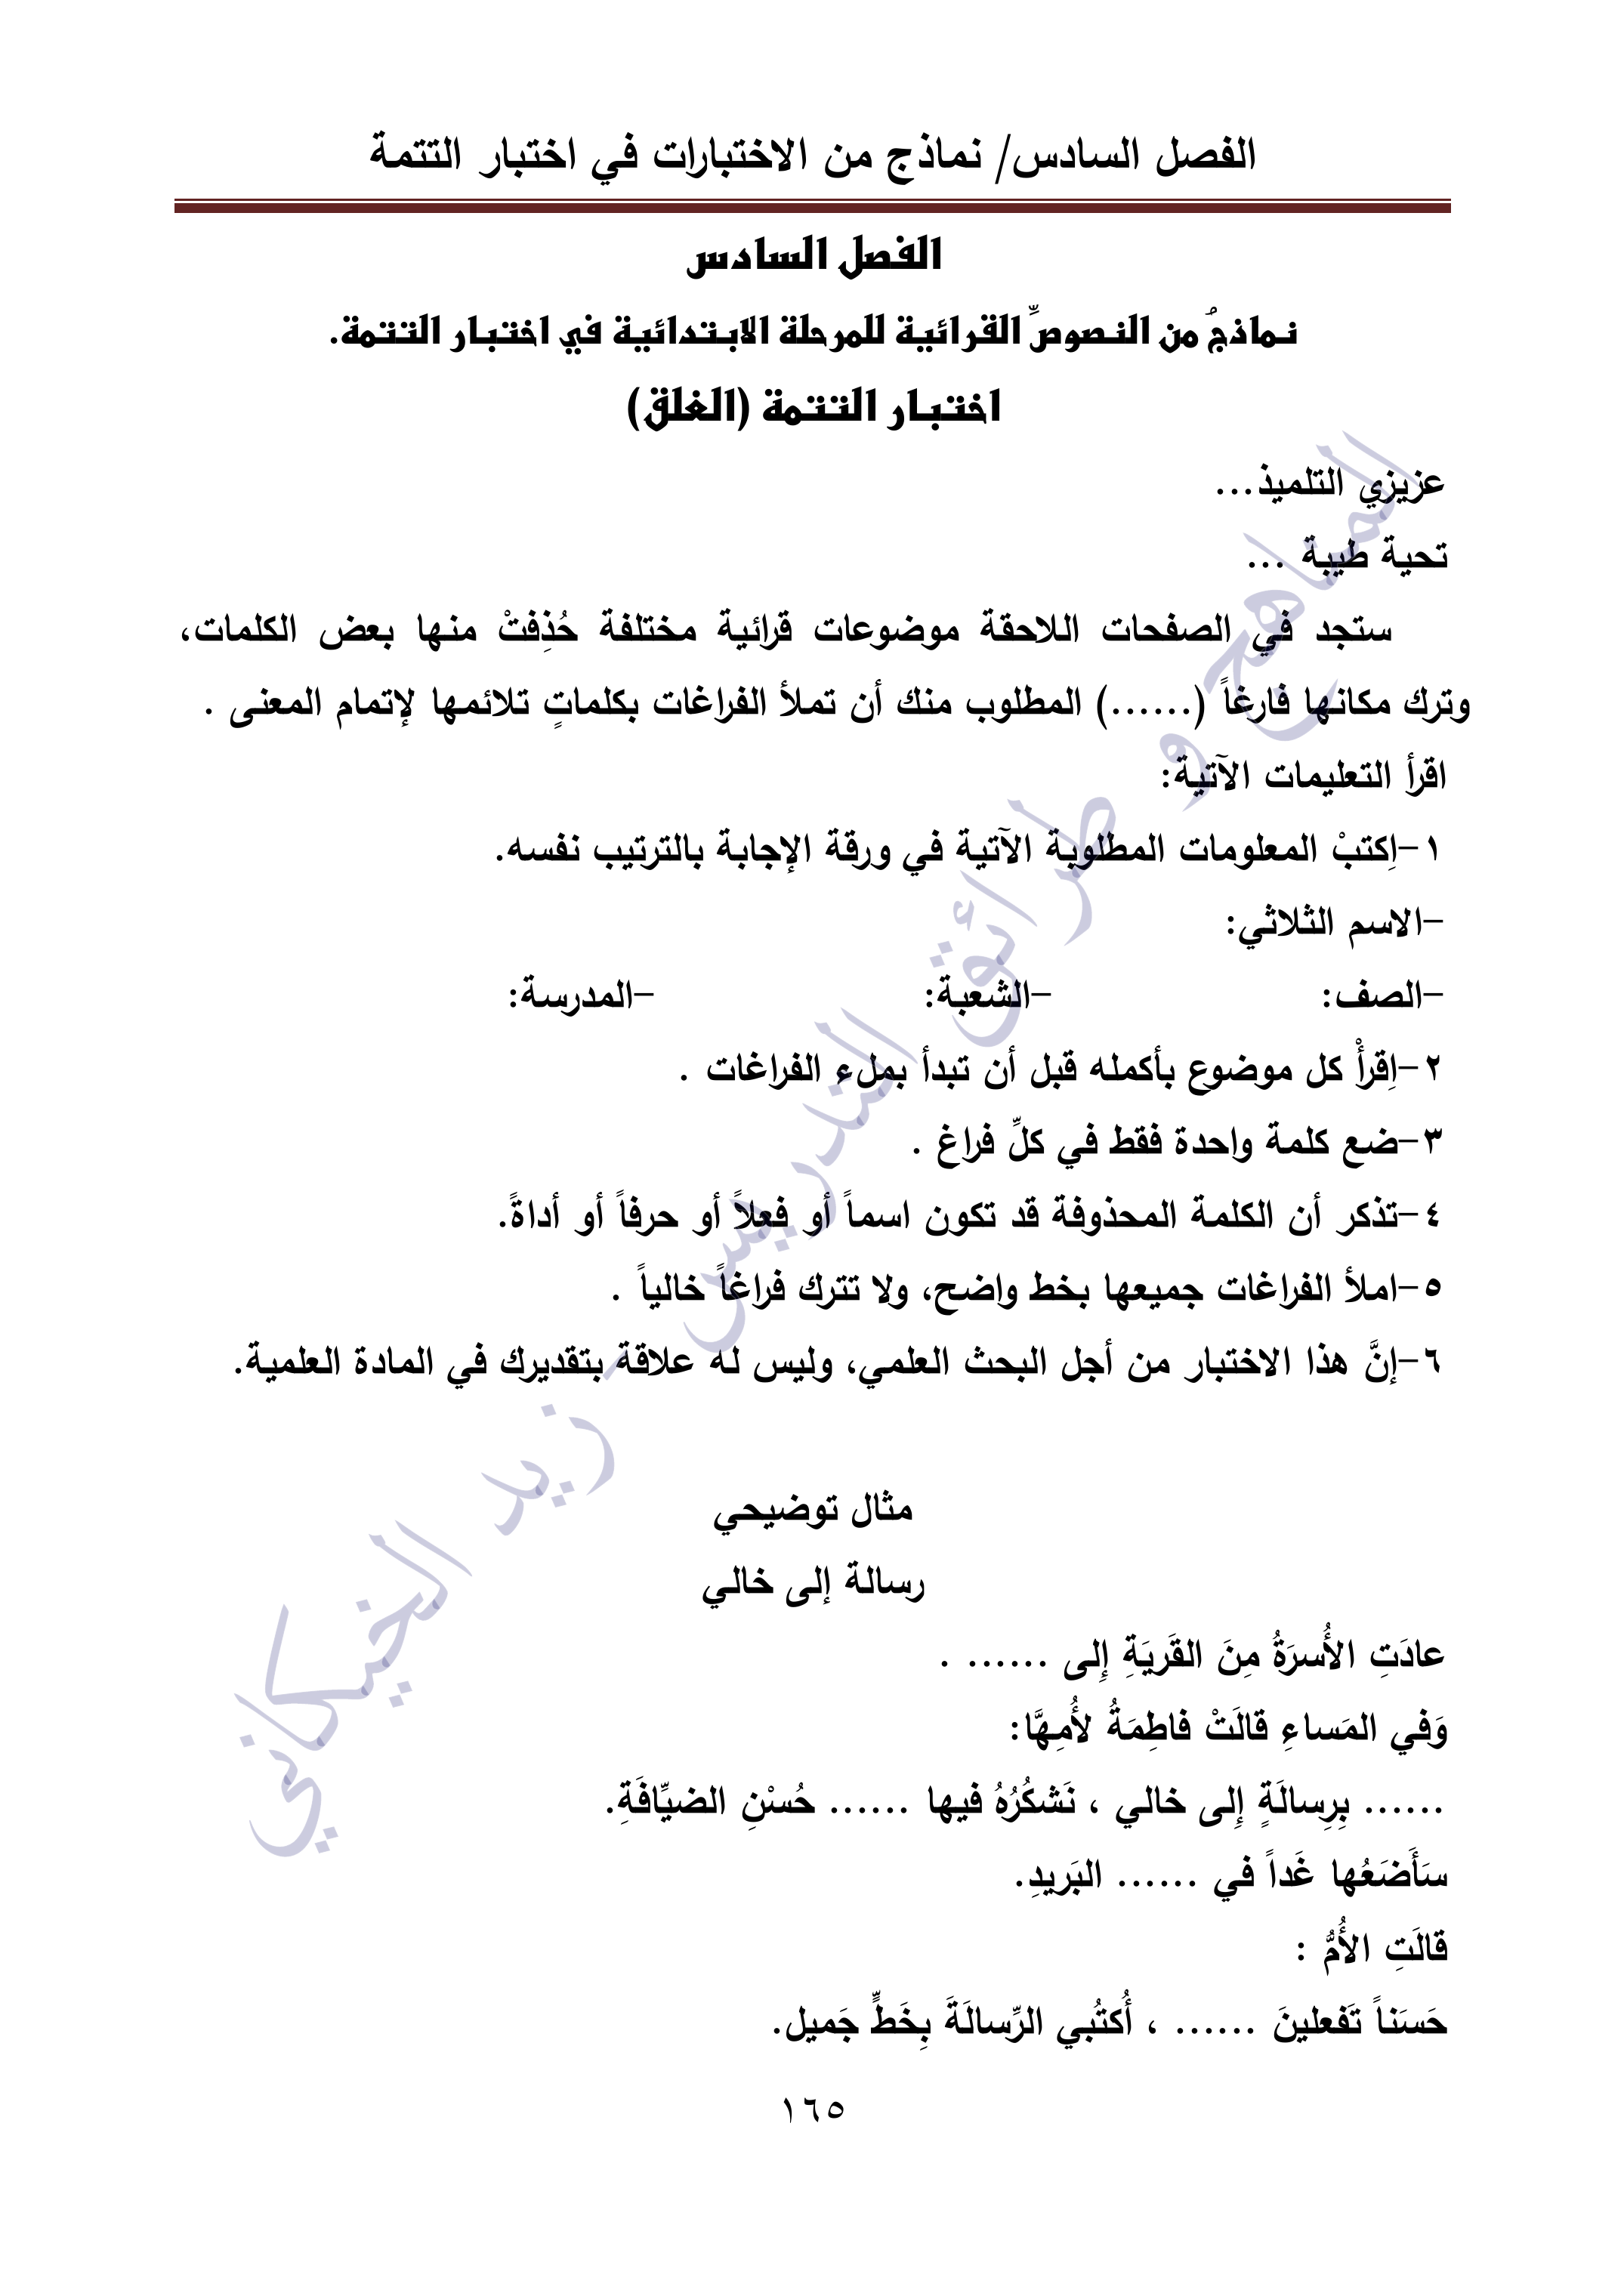 الفصل السادس/ نماذج من الاختبارات في اختبار التتمة
الفصل السادس
نماذجُ من النصوصِّ القرائية للمرحلة الابتدائية في اختبار التتمة.
اختبار التتمة (الغلق)
عزيزي التلميذ...
تحية طيبة ...
ستجد في الصفحات اللاحقة موضوعات قرائية مختلفة حُذِفتْ منها بعض الكلمات،
وترك مكانها فارغاً (......) المطلوب منك أن تملأ الفراغات بكلماتٍ تلائمها لإتمام المعنى .
اقرأ التعليمات الآتية:
١-اِكتبْ المعلومات المطلوبة الآتية في ورقة الإجابة بالترتيب نفسه.
-الاسم الثلاثي:
-الصف: -الشعبة: -المدرسة:
٢-اِقرأْ كل موضوع بأكمله قبل أن تبدأ بملء الفراغات .
٣-ضع كلمة واحدة فقط في كلِّ فراغ .
٤-تذكر أن الكلمة المحذوفة قد تكون اسماً أو فعلاً أو حرفاً أو أداةً.
٥-املأ الفراغات جميعها بخط واضح، ولا تترك فراغاً خالياً .
٦-إنَّ هذا الاختبار من أجل البحث العلمي، وليس له علاقة بتقديرك في المادة العلمية.
مثال توضيحي
رسالة إلى خالي
عادَتِ الأُسرَةُ مِنَ القَريَةِ إِلى ...... .
وَفي المَساءِ قالَتْ فاطِمَةُ لأُمِهَّا:
...... بِرِسالَةٍ إِلى خالي ، نَشكُرُهُ فيها ...... حُسْنِ الضيِّافَةِ.
سَأَضَعُها غَداً في ...... البَريدِ.
قالَتِ الأُمُّ :
حَسَناً تَفعلينَ ...... ، أُكتُبي الرِّسالَةَ بِخَطٍّ جَميل.
١٦٥
المناهج و طرائق التدريس - زيد الخيكاني